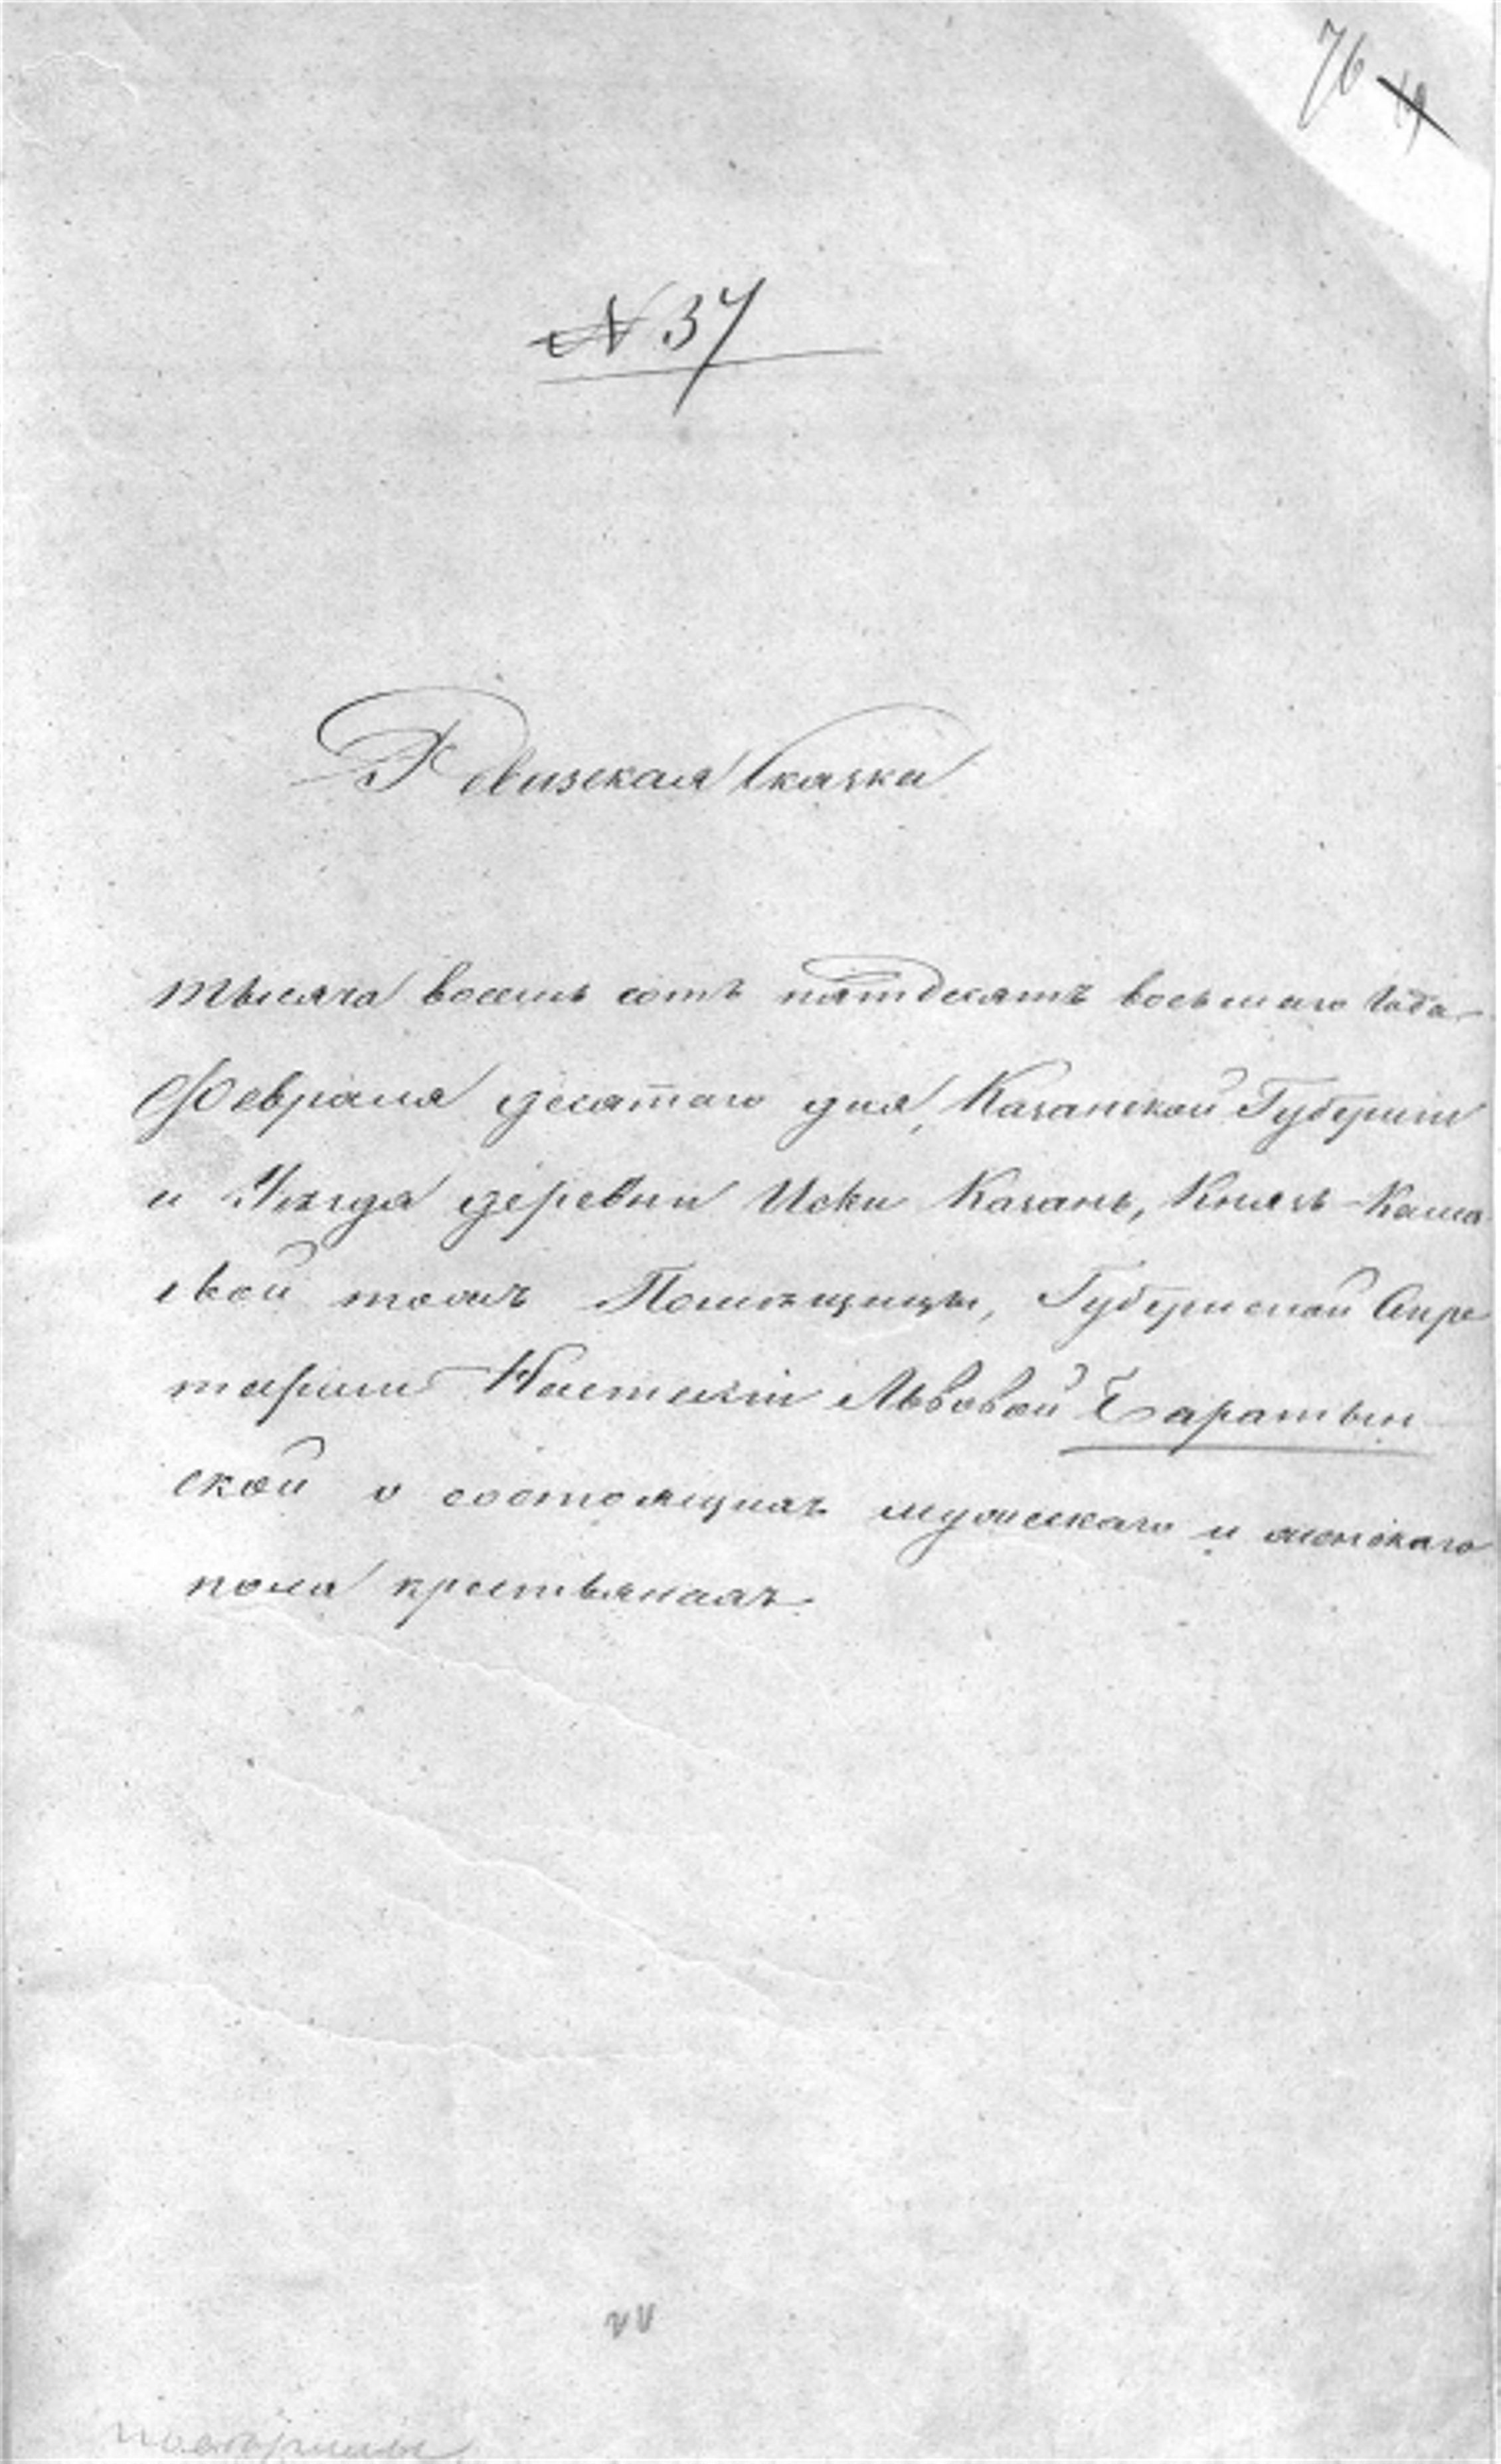 76 19
№ 37
Ревизская Сказка
тысяча восемь сотъ пятдесятъ восьмаго Года
Февраля десятаго дня, Казанской Губерніи
и Уѣзда деревни Иски Казань, Князь-Кама
евой тожъ Помѣщицы, Губернской Секре
тарши Настасіи Львовой Баратын
ской о состоящихъ мужескаго и женскаго
пола крестьянахъ.